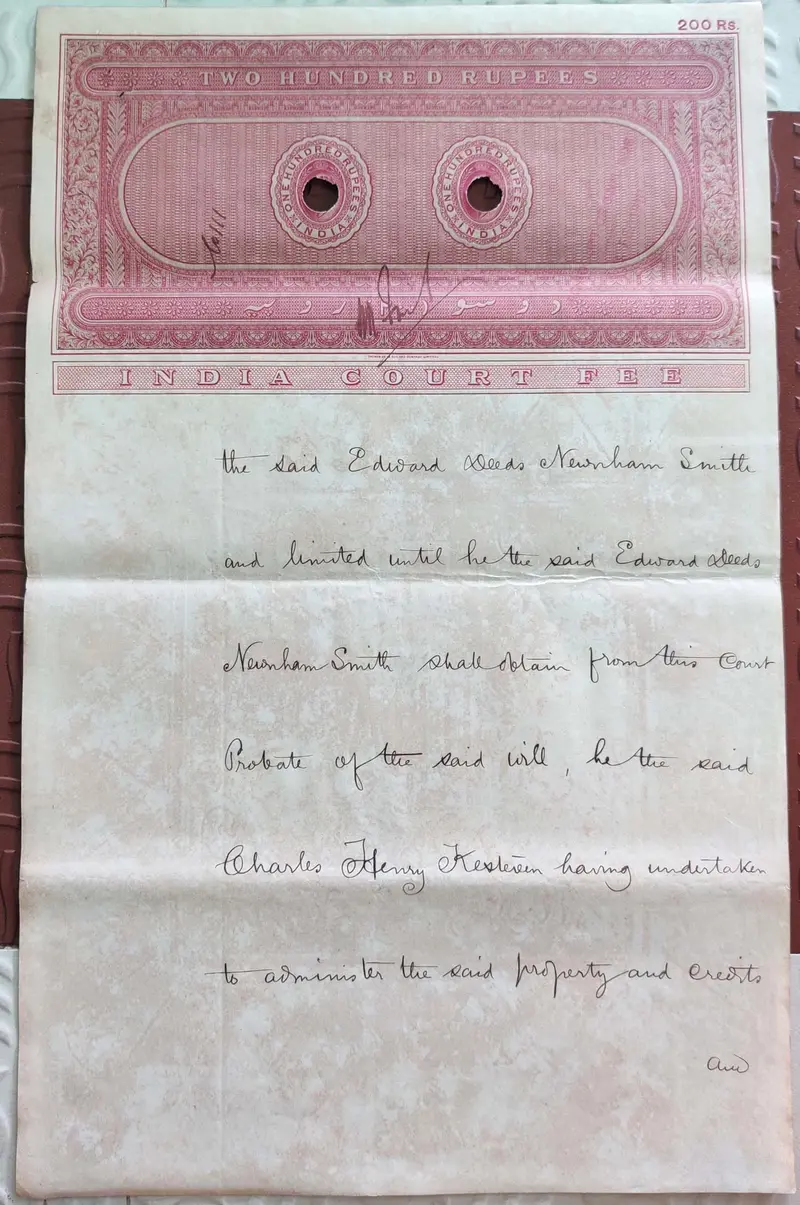 200 Rs.
TWO HUNDRED RUPEES
ONE HUNDRED RUPEES
INDIA
ONE HUNDRED RUPEES
INDIA
دو سو روپیہ
INDIA COURT FEE
the said Edward Deeds Newnham Smith
and limited until he the said Edward Deeds
Newnham Smith shall obtain from this Court
Probate of the said will, he the said
Charles Henry Kesteven having undertaken
to administer the said property and credits
and